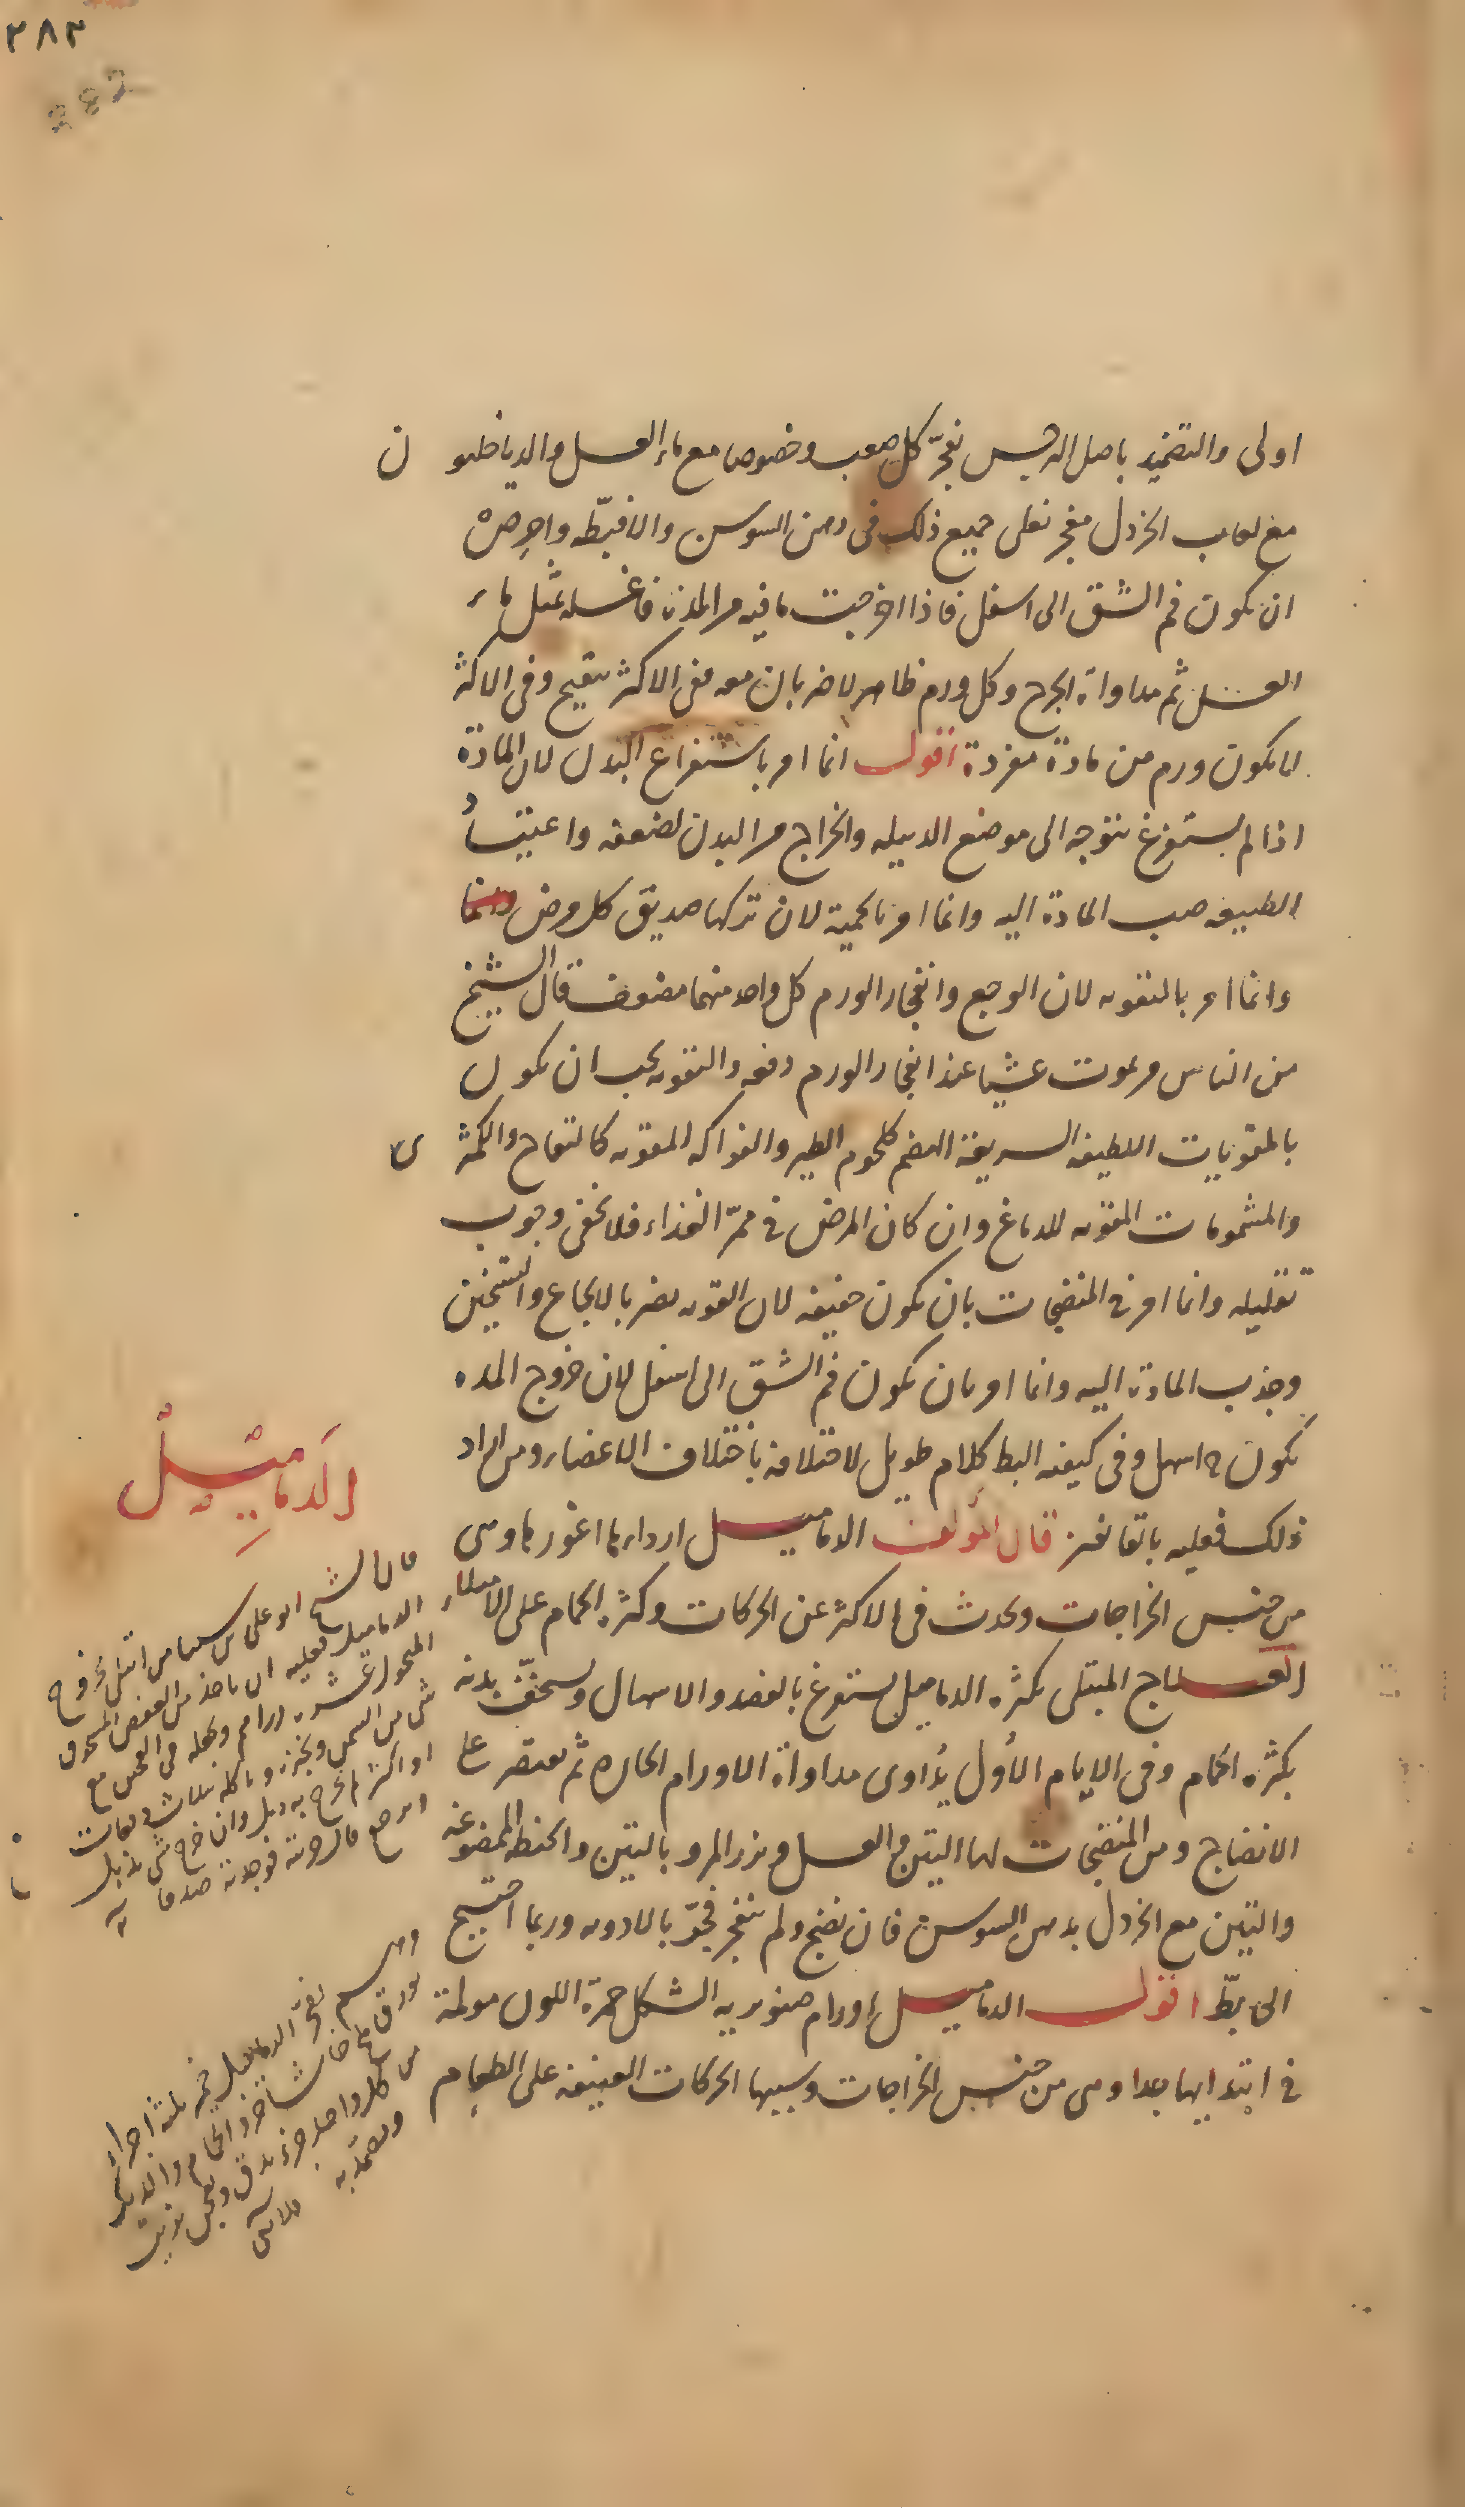 ٢٨٣
282
اولى والتضميد باصل النرجس يفجّر كل صعب وخصوصا مع ماء العسل والدياخلون
مع لعاب الخردل مفجر نعلى جميع ذلك في دهن السوسن والا فبطّه واحرص
ان يكون فم الشق الى اسفل فاذا اخرجت ما فيه من المدة فاغسله بمثل ماء
العسل ثم مداواة الجرح وكل ورم ظاهر لا ضربان معه ففى الاكثر يتقيح وفى الاكثر
لا يكون ورم من مادة مفردة اقول انما امر باستفراغ البدن لان المادة
اذا لم يستفرغ يتوجه الى موضع الدبيله والخراج من البدن لضعفه واعتياد
الطبيعه صب المادة اليه وانما امر بالحمية لان تركها صديق كل مرض
وانما امر بالتقويه لان الوجع وانفجار الورم كل واحد منهما مضعف قال الشيخ
من الناس من يموت غشيا عند انفجار الورم دفعه والتقويه يجب ان يكون
بالمقويات اللطيفه السريعة الهضم كلحوم الطير والفواكه المقويه كالتفاح والكمثرى
والمشمومات المقويه للدماغ وان كان المرض فى ممرّ الغذاء فلا يخفى وجوب
تقليله وانما امر فى المنضجات بان يكون خفيفه لان القويه يضر بالايجاع والتسخين
وجذب المادة اليه وانما امر بان يكون فم الشق الى اسفل لان خروج المده
يكون ح اسهل وفى كيفيه البط كلام طويل لاختلافه باختلاف الاعضاء ومن اراد
ذلك فعليه بالقانون قال المؤلف الدماميل ارداءها اغورها وهى
من جنس الخراجات ويحدث فى الاكثر عن الحركات وكثرة الحمام على الامتلاء
العلاج المبتلى بكثره الدماميل يستفرغ بالفصد والاسهال ويسخّف بدنه
بكثره الحمام وفى الايام الأول يداوى مداواة الاورام الحاره ثم يقتصر على
الانضاج ومن المنضجات لها التين والعسل وبزر المرو بالتين والحنطه الممضوغه
والتين مع الخردل بدهن السوسن فان نضج ولم ينفجر فجّر بالادويه وربما احتيج
الى بطّ اقول الدماميل اورام صنوبريه الشكل حمرة اللون مولمة
فى ابتدايها جدا وهى من جنس الخراجات وسببها الحركات العنيفه على الطعام
الدماميل
قال الشيخ ابو على بن سينا من ابتلى بخروج
الدماميل فعليه ان ياخذ من العفص المسحوق
المنخول عشره دراهم ويجعله فى العجين مع
شى من السمن ويخبزه وياكله ثلاث دفعات
او اكثر لم يخرج به دمل وان خرج شى يذبل
ويرجع قال جربته فوجدته صدقا
ومرهم يفجّر الدماميل خمير ثلثة اجزاء
بورق ملح خاشا خرو الحمام والديك
من كل واحد جزء يدق ويعجن بزيت
ويضمّد به